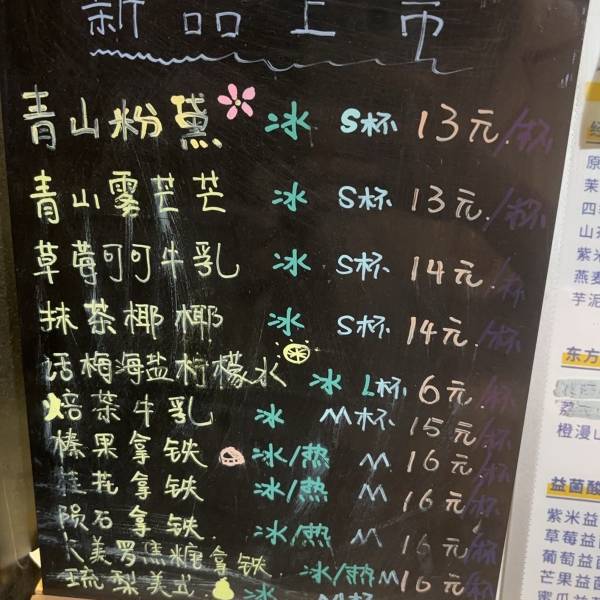 新品上市
青山粉黛 冰 S杯 13元/杯
青山雾芒芒 冰 S杯 13元/杯
草莓可可牛乳 冰 S杯 14元/杯
抹茶椰椰 冰 S杯 14元/杯
话梅海盐柠檬水 冰 L杯 6元/杯
焙茶牛乳 冰 M杯 15元/杯
榛果拿铁 冰/热 M 16元/杯
桂花拿铁 冰/热 M 16元/杯
陨石拿铁 冰/热 M 16元/杯
大美罗焦糖拿铁 冰/热 M 16元/杯
琉梨美式 冰 M杯
原
茉
四
山茶
紫米
燕麦
芋泥
东方
橙漫山
益菌酸
紫米益
草莓益菌
葡萄益菌
芒果益菌
蜜瓜益菌